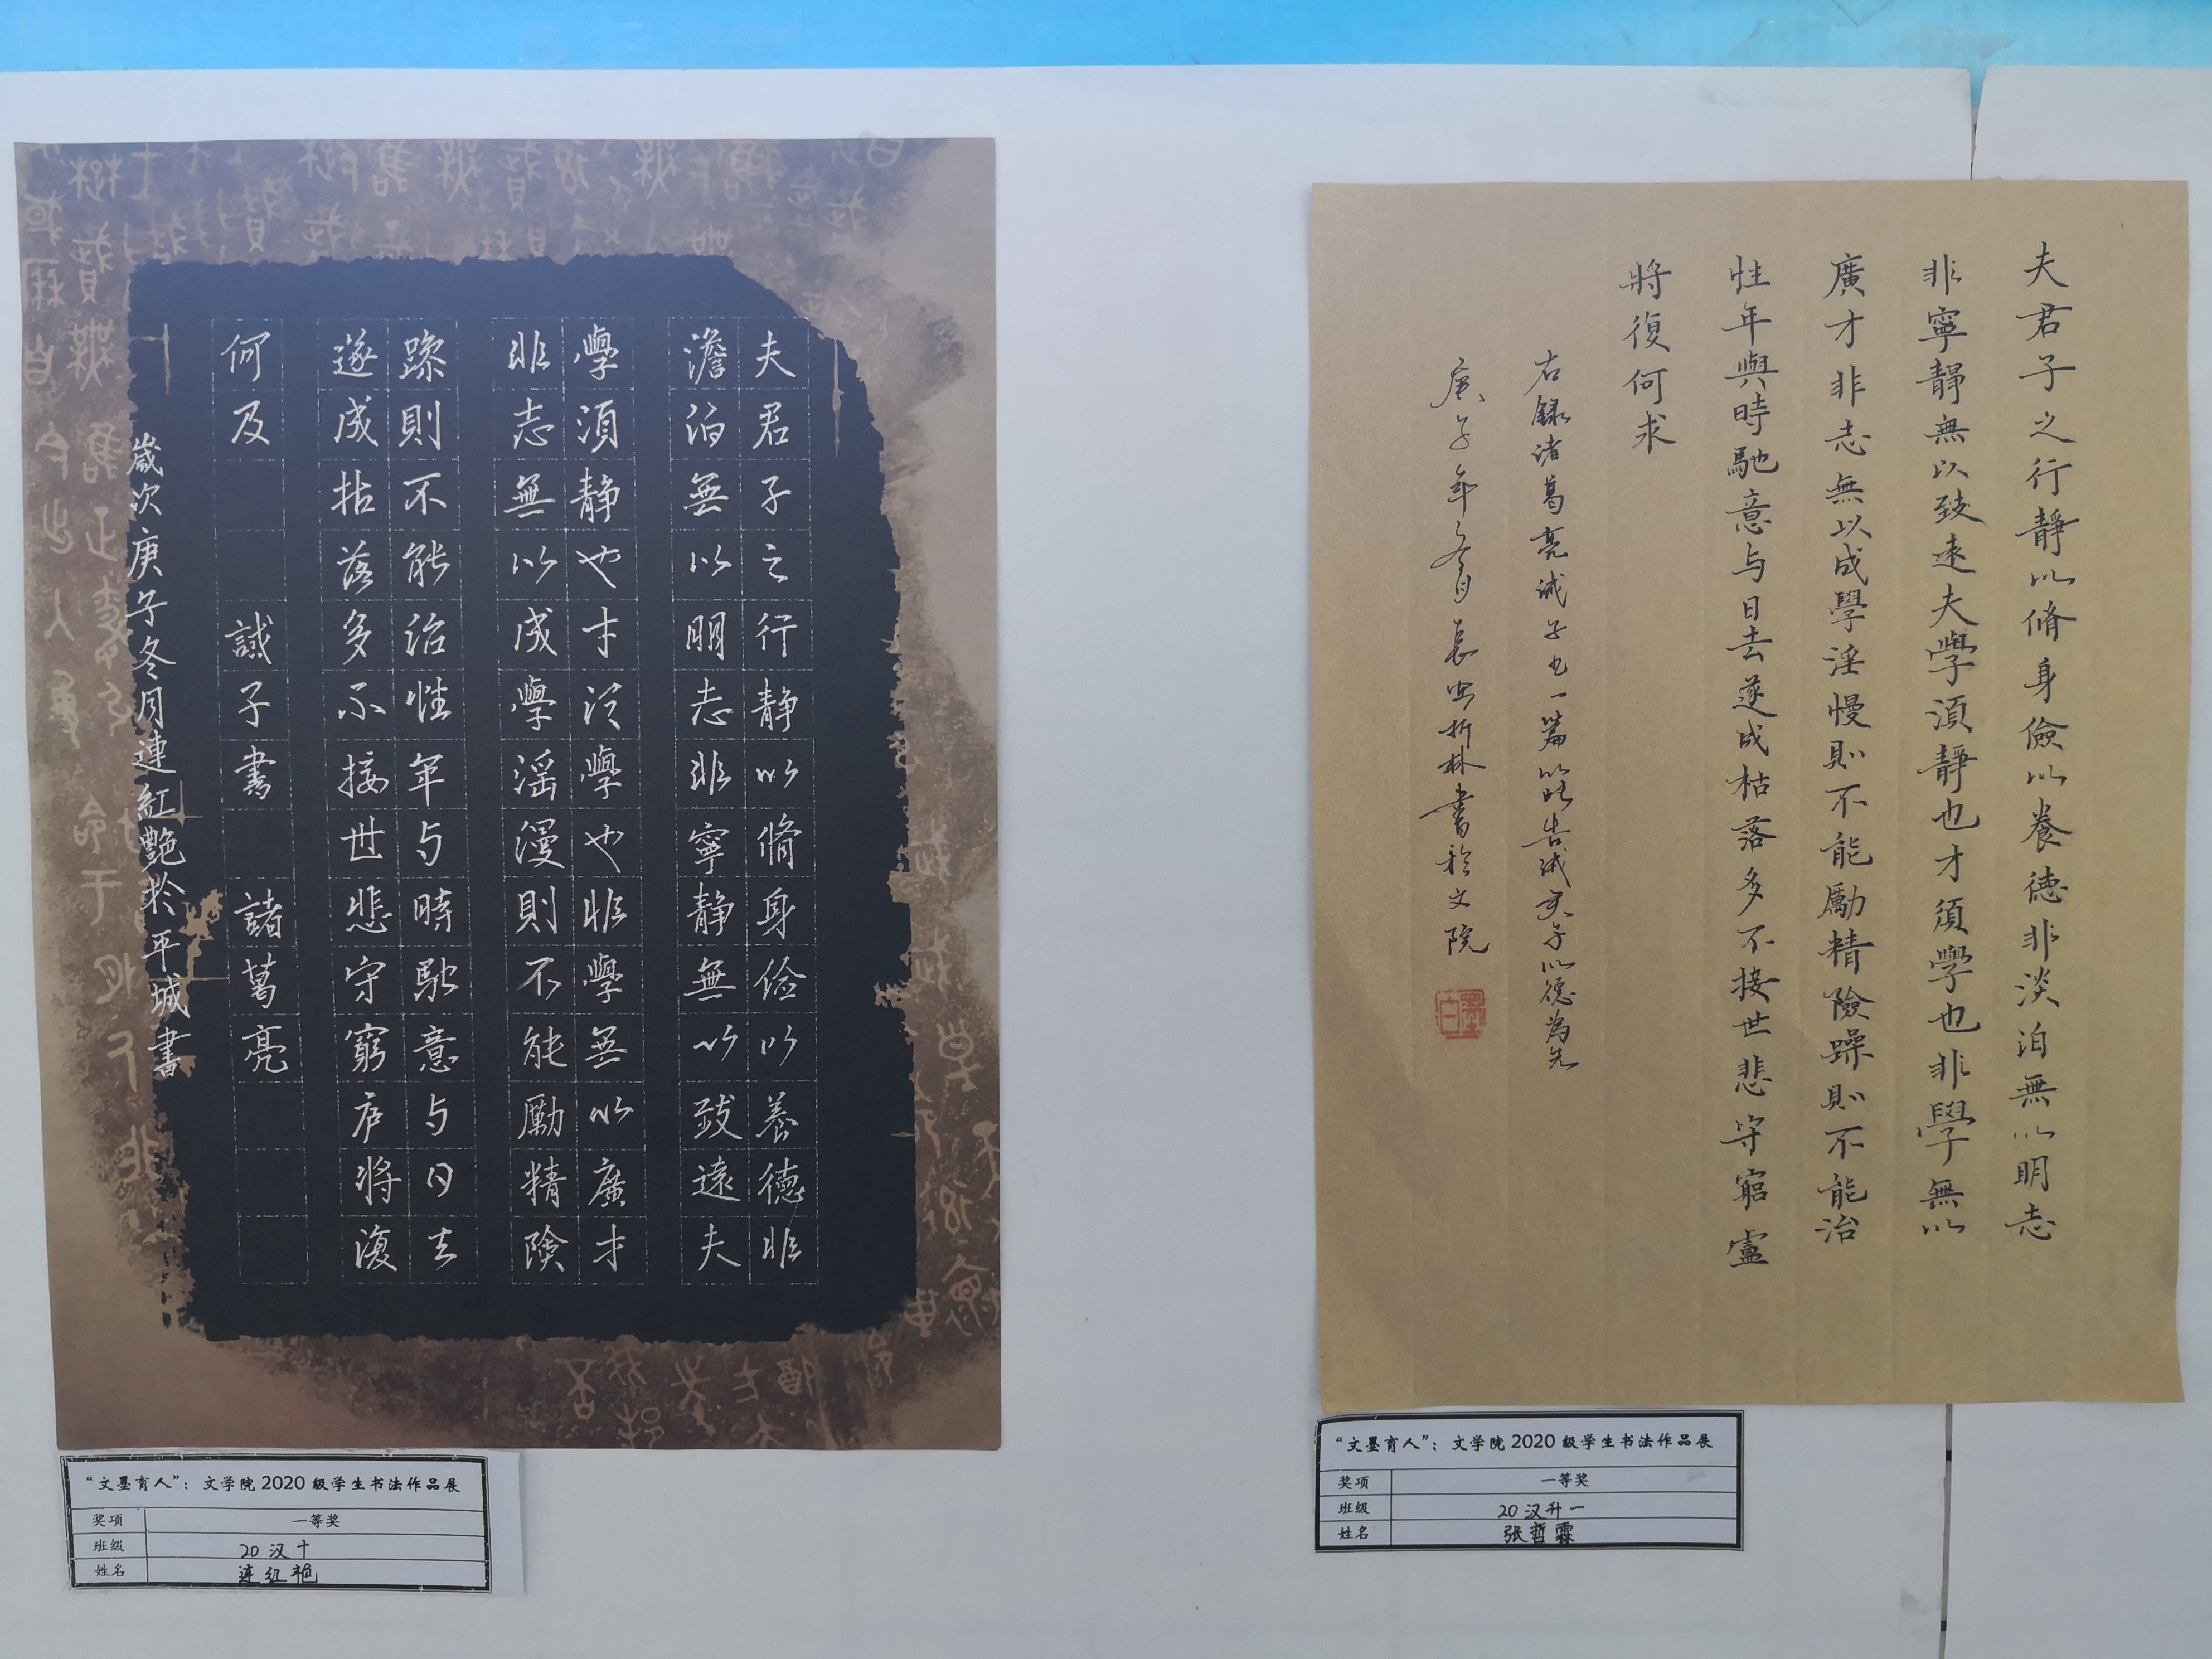 夫君子之行静以脩身俭以養德非
澹泊無以明志非寧静無以致遠夫
學須静也才須學也非學無以廣才
非志無以成學滛漫則不能勵精險
躁則不能治性年与時馳意与日去
遂成枯落多不接世悲守窮庐將復
何及 誡子書 諸葛亮
歲次庚子冬月連紅艷於平城書
“文墨育人”：文学院2020级学生书法作品展
奖项 一等奖
班级 20汉十
姓名 连红艳
夫君子之行靜以脩身儉以養德非淡泊無以明志
非寧靜無以致遠夫學須靜也才須學也非學無以
廣才非志無以成學淫慢則不能勵精險躁則不能治
性年與時馳意与日去遂成枯落多不接世悲守窮盧
將復何求
右録诸葛亮诫子书一篇以此告诫天子以德為先
庚子年冬月長安折林書於文院
“文墨育人”：文学院2020级学生书法作品展
奖项 一等奖
班级 20汉升一
姓名 张哲霖